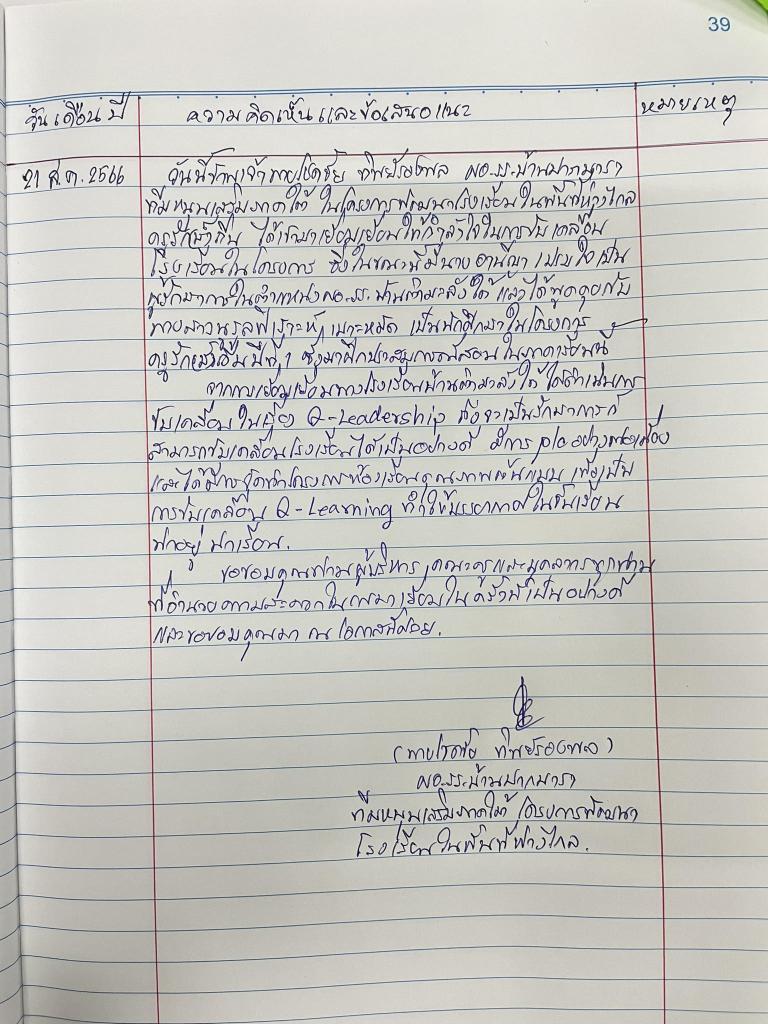 39
วัน เดือน ปี ความคิดเห็น และข้อเสนอแนะ หมายเหตุ
21 ส.ค. 2566 วันนี้ข้าพเจ้านายโชคชัย ทิพย์รองพล ผอ.รร.บ้านปากบารา
ทีมหนุนเสริมภาคใต้ ในโครงการพัฒนาโรงเรียนในพื้นที่ห่างไกล
ครูรักษ์ถิ่น ได้เข้ามาเยี่ยมเยียนให้กำลังใจในการขับเคลื่อน
โรงเรียนในโครงการ ซึ่งในขณะนี้มีนาง เป็น
ผู้รักษาการในตำแหน่งผอ.รร. และได้พูดคุยกับ
นางสาวนูรุลฟิ เป็นนักศึกษาในโครงการ
ครูรักษ์ถิ่น ซึ่งมาฝึกประสบการณ์สอน ในภาคเรียนนี้
จากการเยี่ยมเยียนทางโรงเรียน ได้ดำเนินการ
ขับเคลื่อน ในเรื่อง Q-Leadership ถึงจะเป็นรักษาการก็
สามารถขับเคลื่อนโรงเรียนได้เป็นอย่างดี มีการ plc อย่างต่อเนื่อง
และได้มีการจัดทำโครงการห้องเรียนคุณภาพต้นแบบ เพื่อเป็น
การขับเคลื่อน Q-Learning ทำให้บรรยากาศในชั้นเรียน
น่าอยู่ น่าเรียน.
ขอขอบคุณท่านผู้บริหาร คณะครูและบุคลากรทุกท่าน
ที่อำนวยความสะดวกในการมาเยี่ยมในครั้งนี้เป็นอย่างดี
และขอขอบคุณมา ณ โอกาสนี้ด้วย.
(นายโชคชัย ทิพย์รองพล)
ผอ.รร.บ้านปากบารา
ทีมหนุนเสริมภาคใต้ โครงการพัฒนา
โรงเรียนในพื้นที่ห่างไกล.